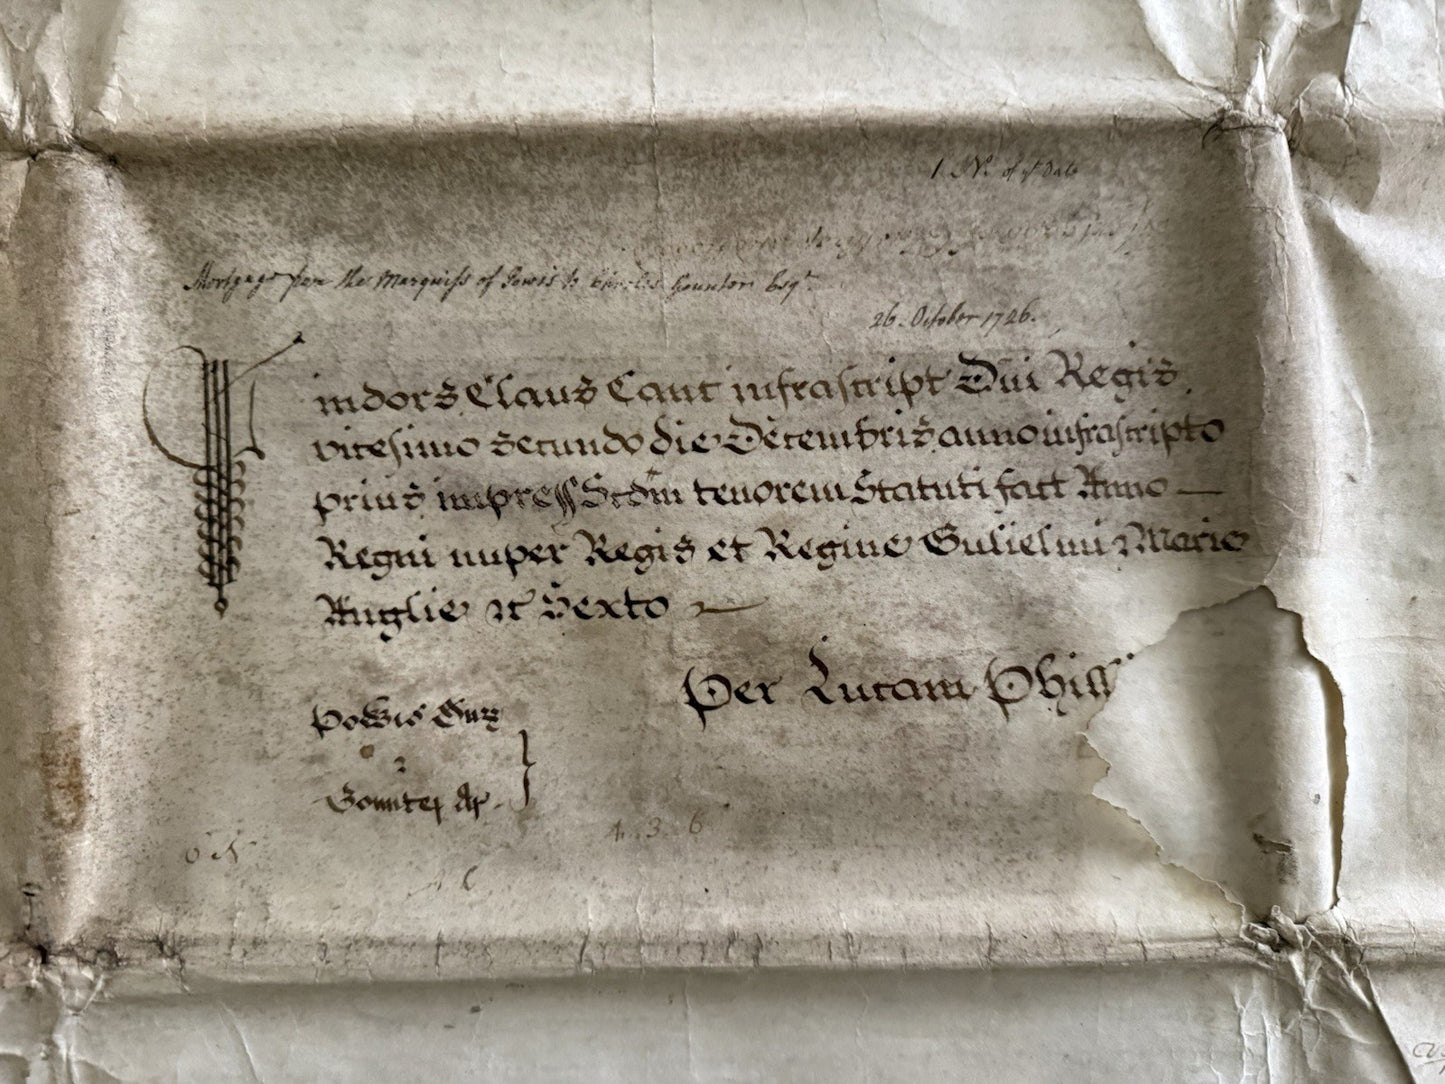 1 No. of yt Date
Mortgage from the Marquiss of Powis to Charles Gounter Esqr.
26. October 1726.
Indors Claus Canc infrascript Dni Regis
vicesimo Secundo die Decembris anno infrascripto
prius impress Scdm tenorem Statuti fact Anno
Regni nuper Regis et Regine Gulielmi & Marie
Anglie &c Sexto
Per Lucam Phill
Powis
&
Gounter Ar
4. 3. 6